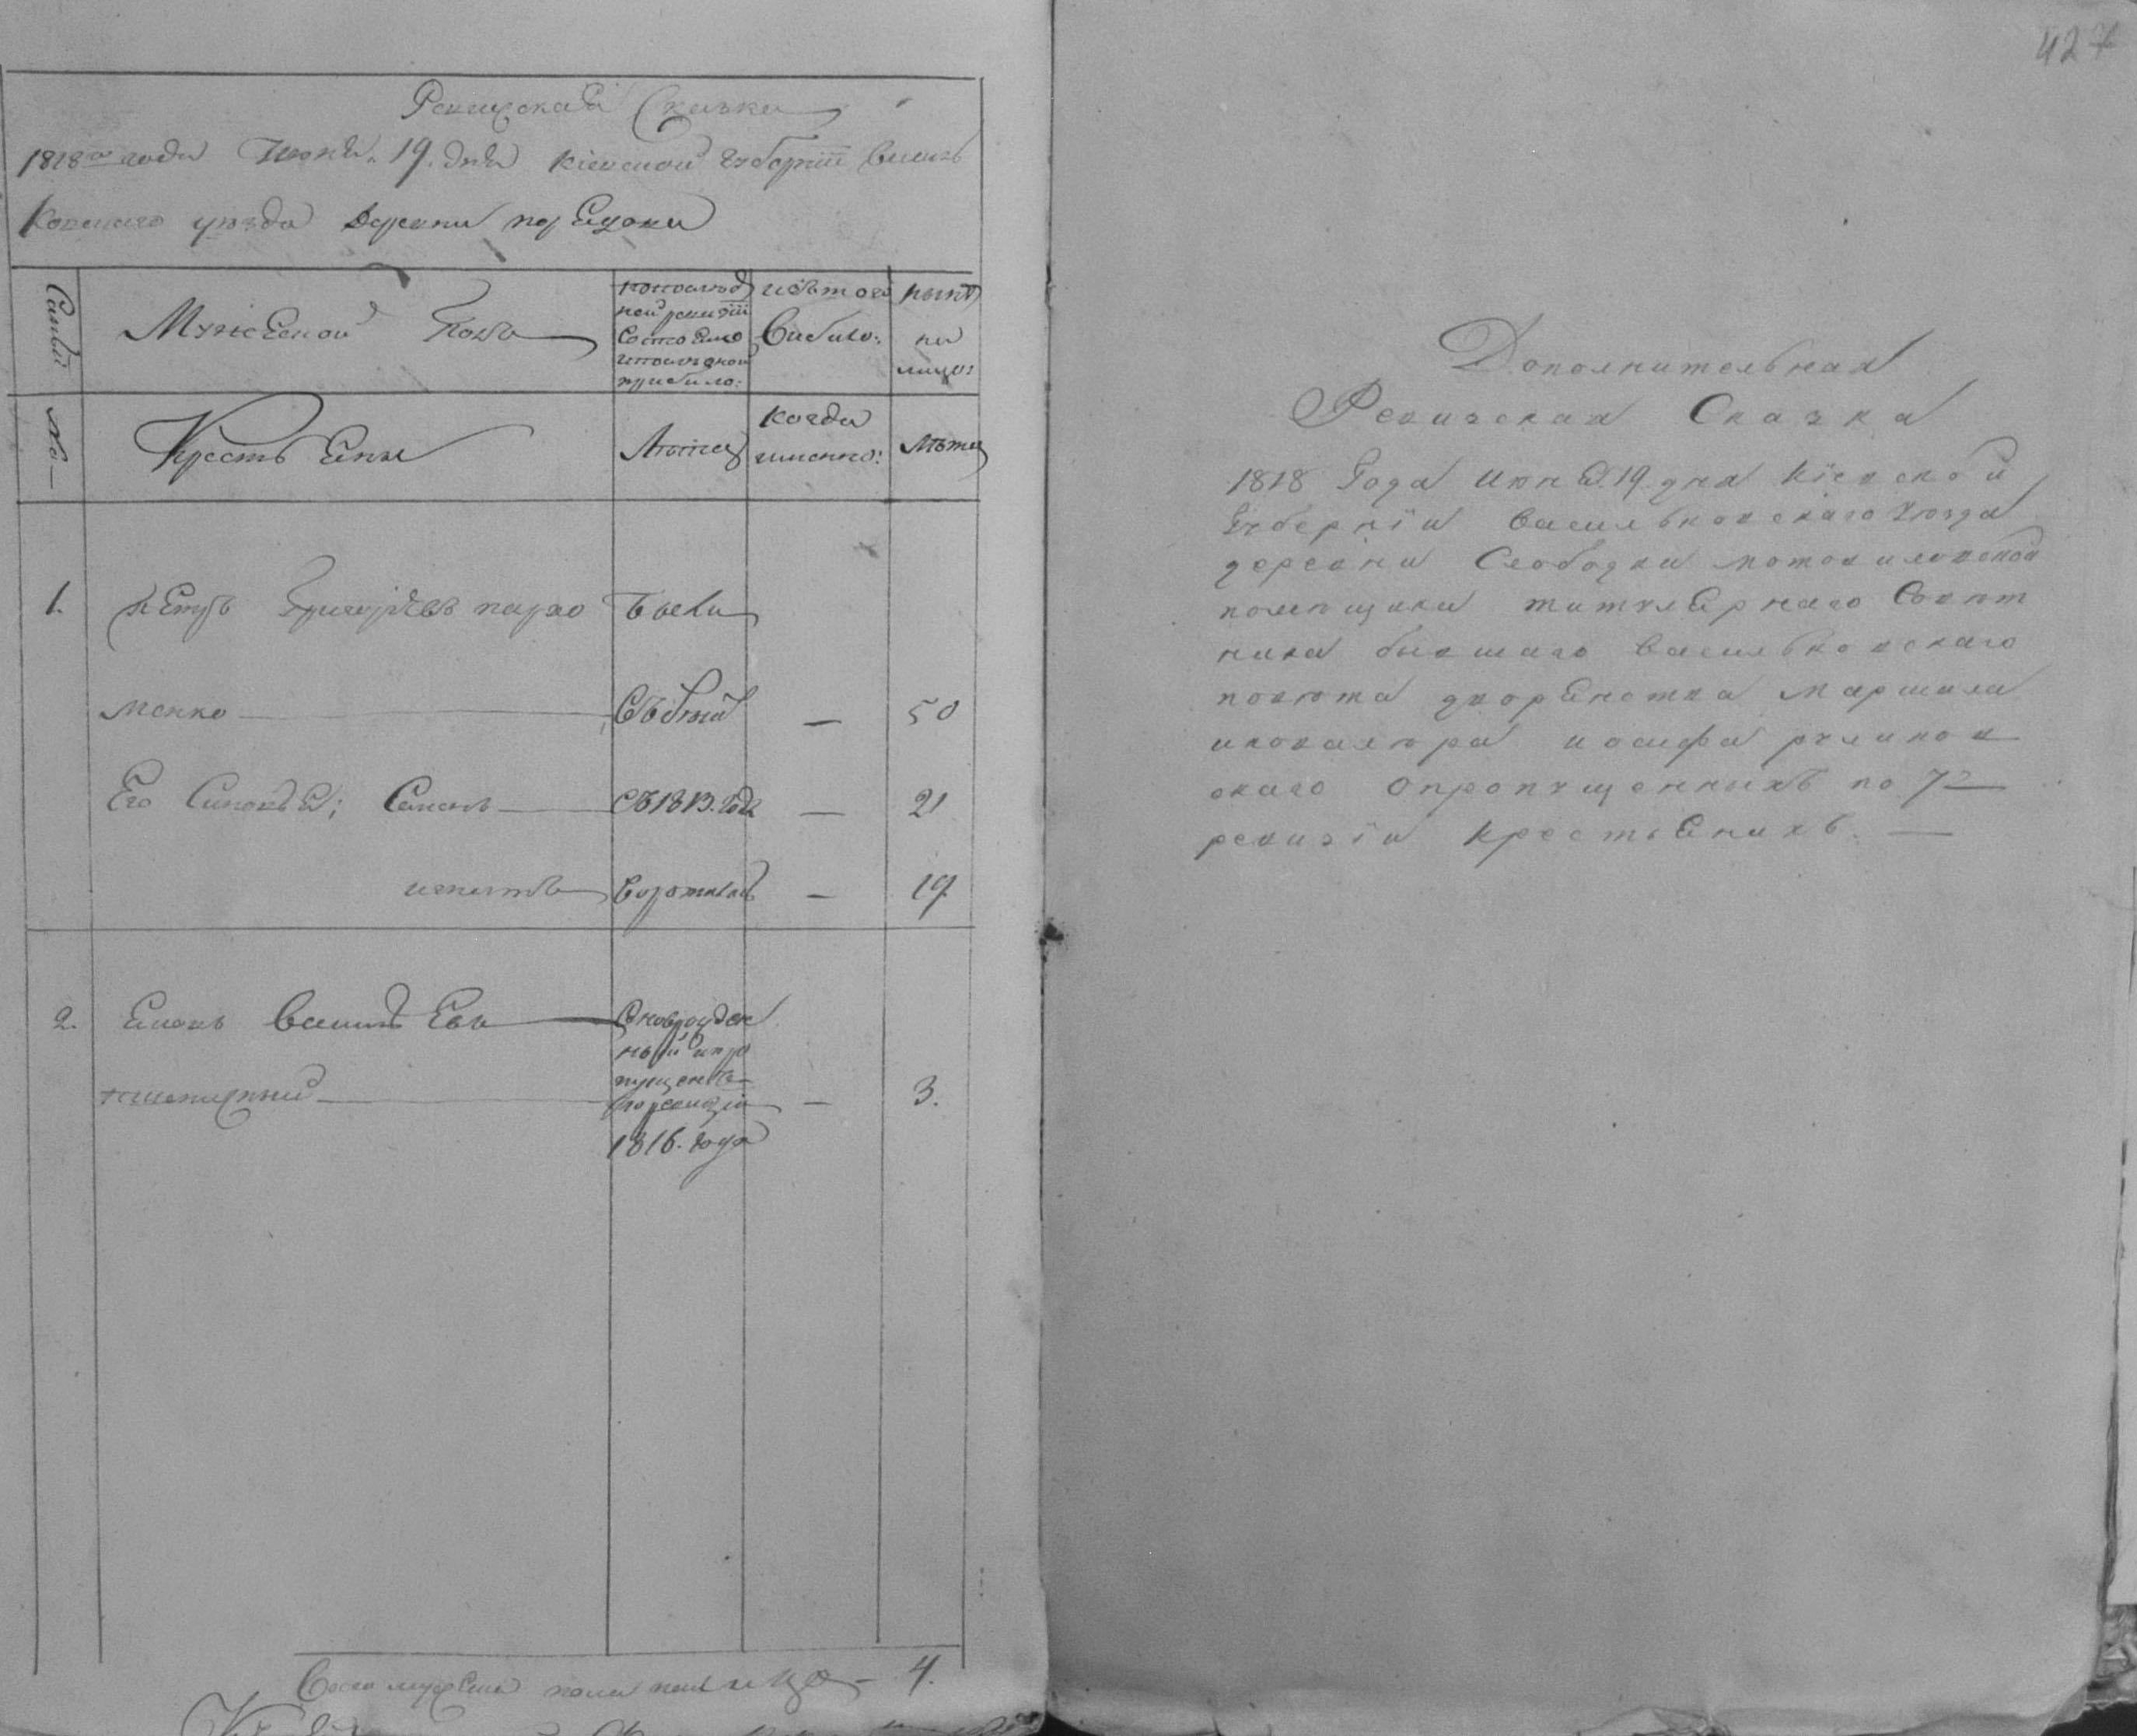 Ревизская Сказка
1818го года Июня. 19. дня Кіевской губерніи Василь
Ковскаго уезда Деревни
Семьи
Мужеской Полъ
попослед
ней ревизіи
Состояло
ипослеоной
прибыло:
изътого
Выбыло:
нынѣ
на
лицо:
№
Крестьяне
Лѣта
когда
именно:
Лѣта
1.
Петръ Григорьевъ пархо
Бывш
менко
—
50
Его Сыновья; Семенъ
Съ 1813. года
—
21
игнатъ
—
19
2.
Василь Евъ
Сноврожден
ный ипро
пущенъ
поревизіи
1816. года
—
3.
Всего мужеска пола налицо — 4.
427
Дополнительная
Ревизская Сказка
1818 Года июня 19. дня Кіевской
Губерніи Васильковскаго Уезда
деревни Слободки мотовиловской
помещика титулярнаго Совет
ника бывшаго Васильковскаго
повета дворянства Маршала
икавалера иосифа руликов
скаго опропущенныхъ по 7й
ревизіи крестьянихъ. —